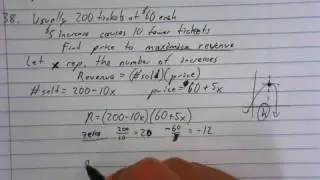 38. Usually 200 tickets at $60 each
$5 increase causes 10 fewer tickets
Find price to maximise revenue
Let x rep. the number of increases
Revenue = (#sold)(price)
#sold = 200-10x price = 60+5x
R=(200-10x)(60+5x)
zeros 200/10 = 20 -60/5 = -12
h